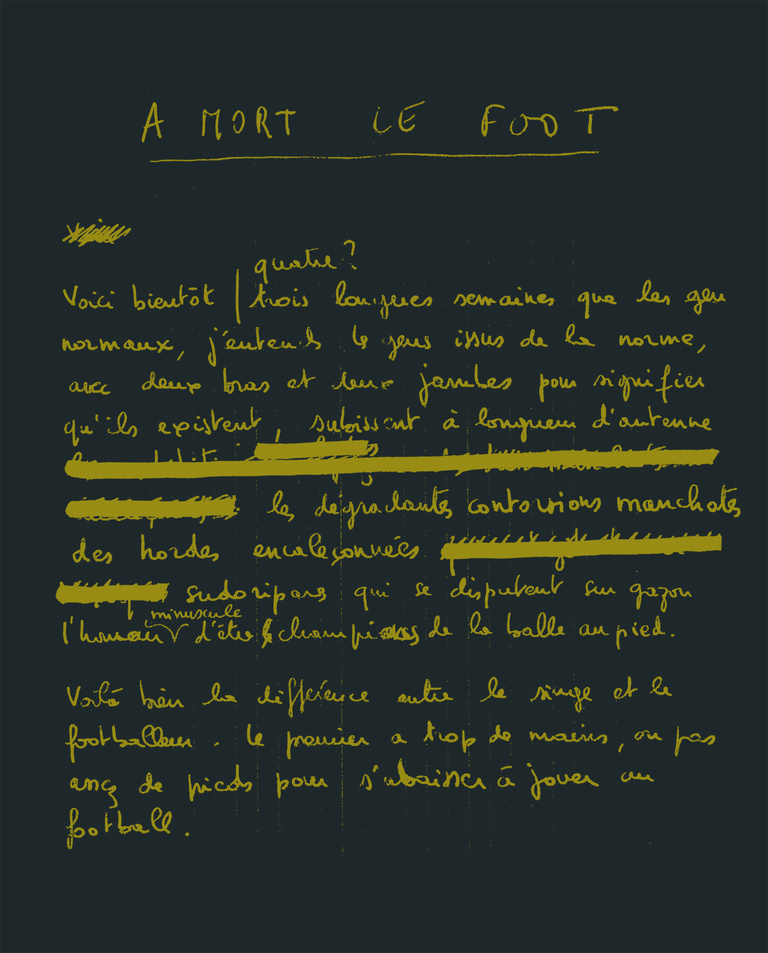 A MORT LE FOOT
quatre ?
Voici bientôt | trois longues semaines que les gens
normaux, j'entends les gens issus de la norme,
avec deux bras et deux jambes pour signifier
qu'ils existent, subissent à longueur d'antenne
les dégradantes contorsions manchotes
des hordes encaleçonnées
sudoripares qui se disputent sur gazon
minuscule
l'honneur d'être champions de la balle au pied.
Voilà bien la différence entre le singe et le
footballeur. Le premier a trop de mains, ou pas
assez de pieds pour s'abaisser à jouer au
football.